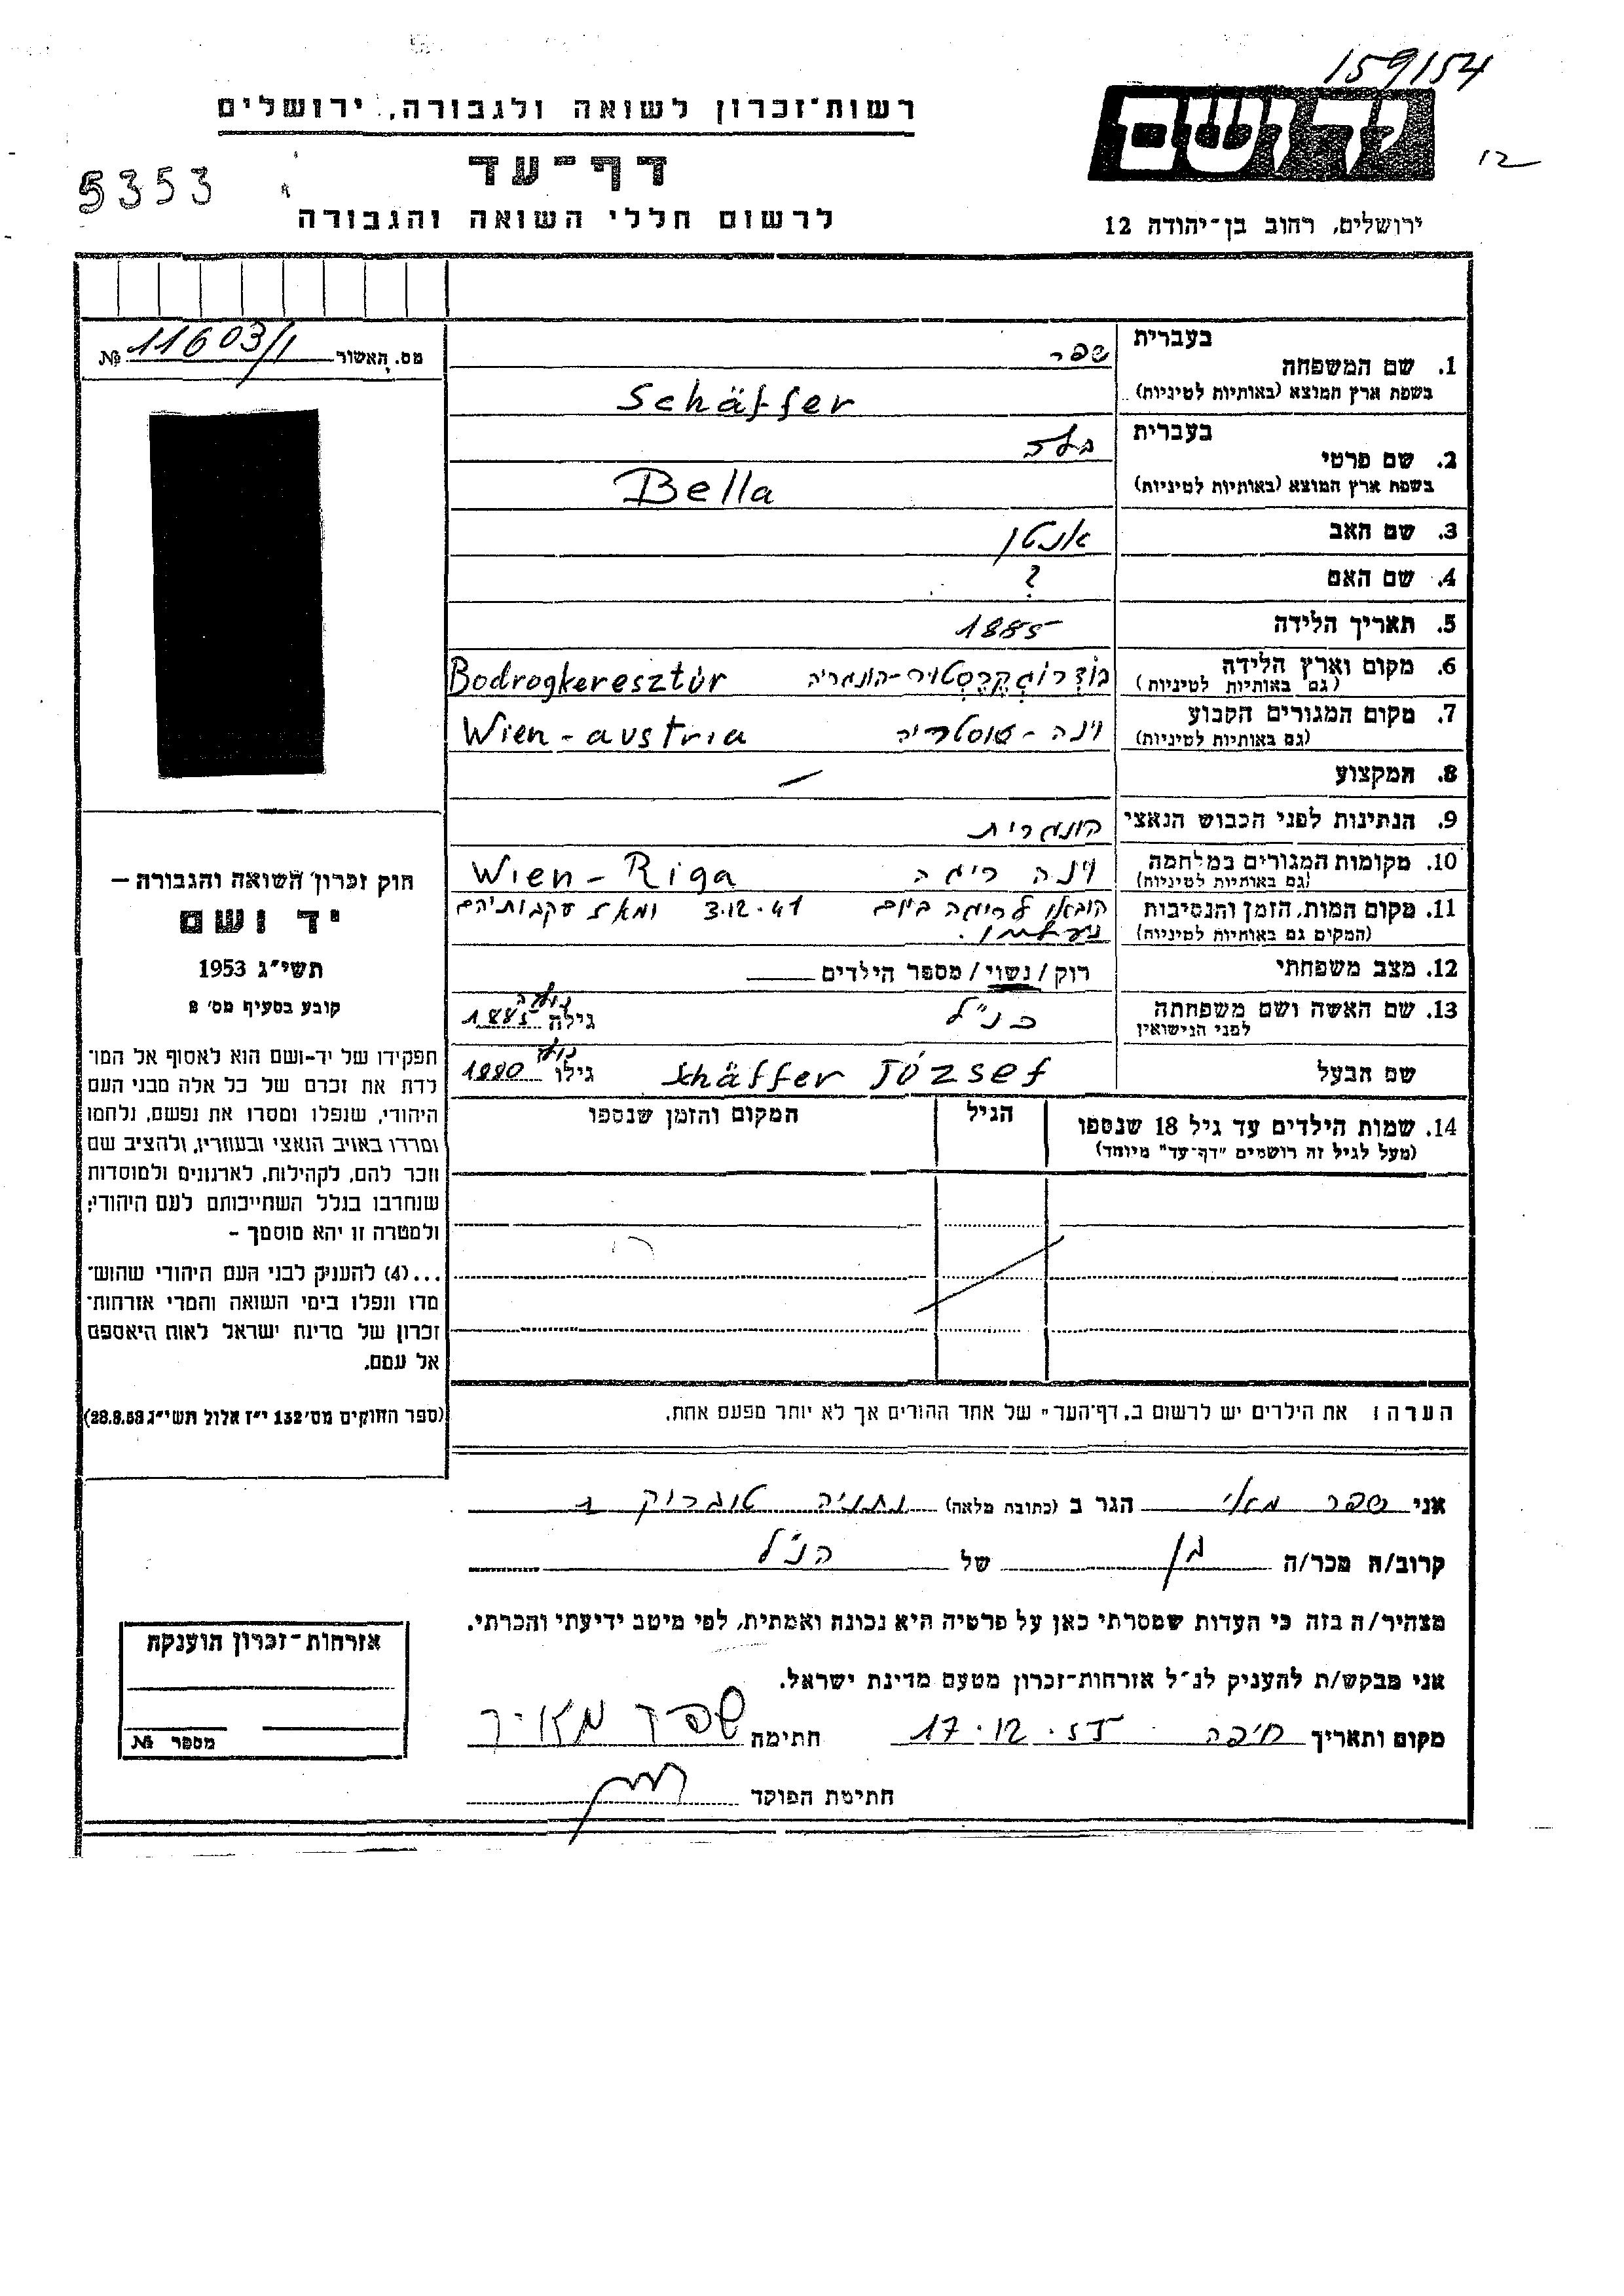 159154
רשות־זכרון לשואה ולגבורה, ירושלים
ידושם
12
דף־עד
5353
לרשום חללי השואה והגבורה
ירושלים, רחוב בן־יהודה 12
מס. האשור 11603/1 №
1. שם המשפחה
בעברית שפר
בשפת ארץ המוצא (באותיות לטיניות) Schäffer
2. שם פרטי
בעברית בלה
בשפת ארץ המוצא (באותיות לטיניות) Bella
3. שם האב אנטון
4. שם האם ?
5. תאריך הלידה 1885
6. מקום וארץ הלידה בודרוגקרסטור-הונגריה Bodrogkeresztúr
(גם באותיות לטיניות)
7. מקום המגורים הקבוע וינה - אוסטריה Wien - austria
(גם באותיות לטיניות)
8. המקצוע —
9. הנתינות לפני הכבוש הנאצי הונגרית
10. מקומות המגורים במלחמה וינה ריגה Wien - Riga
(גם באותיות לטיניות)
11. מקום המות, הזמן והנסיבות הובאו לריגה ביום 3.12.41 ומאז עקבותיהם
(המקום גם באותיות לטיניות) נעלמו.
12. מצב משפחתי רוק / נשוי / מספר הילדים
13. שם האשה ושם משפחתה כנ"ל גילה 1885
לפני הנישואין
שם הבעל Schäffer József גילו 1880
14. שמות הילדים עד גיל 18 שנספו הגיל המקום והזמן שנספו
(מעל לגיל זה רושמים "דף־עד" מיוחד)
הערה: את הילדים יש לרשום ב„דף־העד" של אחד ההורים אך לא יותר מפעם אחת.
חוק זכרון השואה והגבורה —
יד ושם
תשי״ג 1953
קובע בסעיף מס׳ 8
תפקידו של יד-ושם הוא לאסוף אל המו־
לדת את זכרם של כל אלה מבני העם
היהודי, שנפלו ומסרו את נפשם, נלחמו
ומרדו באויב הנאצי ובעוזריו, ולהציב שם
וזכר להם, לקהילות, לארגונים ולמוסדות
שנחרבו בגלל השתייכותם לעם היהודי;
ולמטרה זו יהא מוסמך –
...(4) להעניק לבני העם היהודי שהוש־
מדו ונפלו בימי השואה והמרי אזרחות־
זכרון של מדינת ישראל לאות היאספם
אל עמם.
(ספר החוקים מס׳ 132 י״ז אלול תשי״ג 28.8.53)
אני שפר מאיר הגר ב (כתובת מלאה) נתניה טוברוק
קרוב/ה מכר/ה בן של הנ"ל
מצהיר/ה בזה כי העדות שמסרתי כאן על פרטיה היא נכונה ואמתית, לפי מיטב ידיעתי והכרתי.
אני מבקש/ת להעניק לנ״ל אזרחות-זכרון מטעם מדינת ישראל.
מקום ותאריך חיפה 17.12.55 חתימה שפר מאיר
חתימת הפוקד
אזרחות-זכרון הוענקה
מספר №